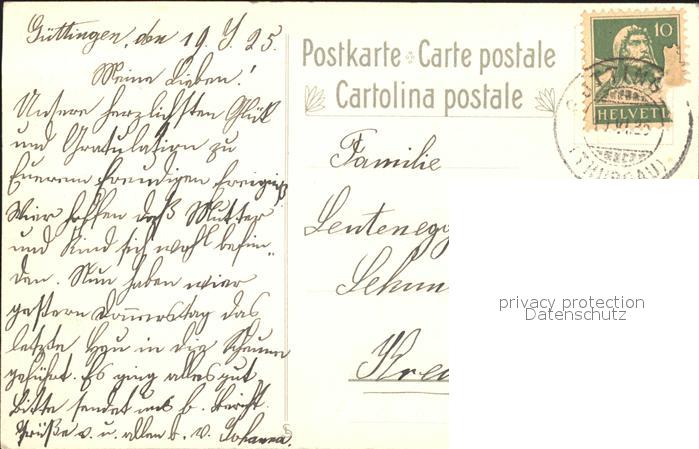 Güttingen, den 19. J. 25.
Meine Lieben!
Unsere herzlichsten Glück
und Gratulation zu
Euerem freudigen Ereigniß
Wier hoffen daß Mutter
und Kind sich wohl befin„
den. Nun haben wier
gestern Donnerstag das
letzte Heu in die Scheune
geführt. Es ging alles gut
Bitte sendet uns b. Bericht.
Grüße a. u. allen b. v. Johanna.
Postkarte Carte postale
Cartolina postale
10
HELVETI
(THURGAU)
Familie
Leutenegg
Kre
privacy protection
Datenschutz